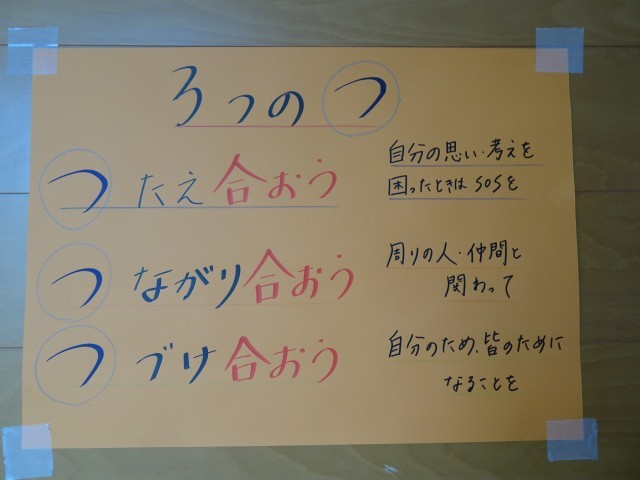 3つの つ
つたえ合おう
自分の思い・考えを
困ったときはSOSを
つながり合おう
周りの人・仲間と
関わって
つづけ合おう
自分のため、皆のために
なることを